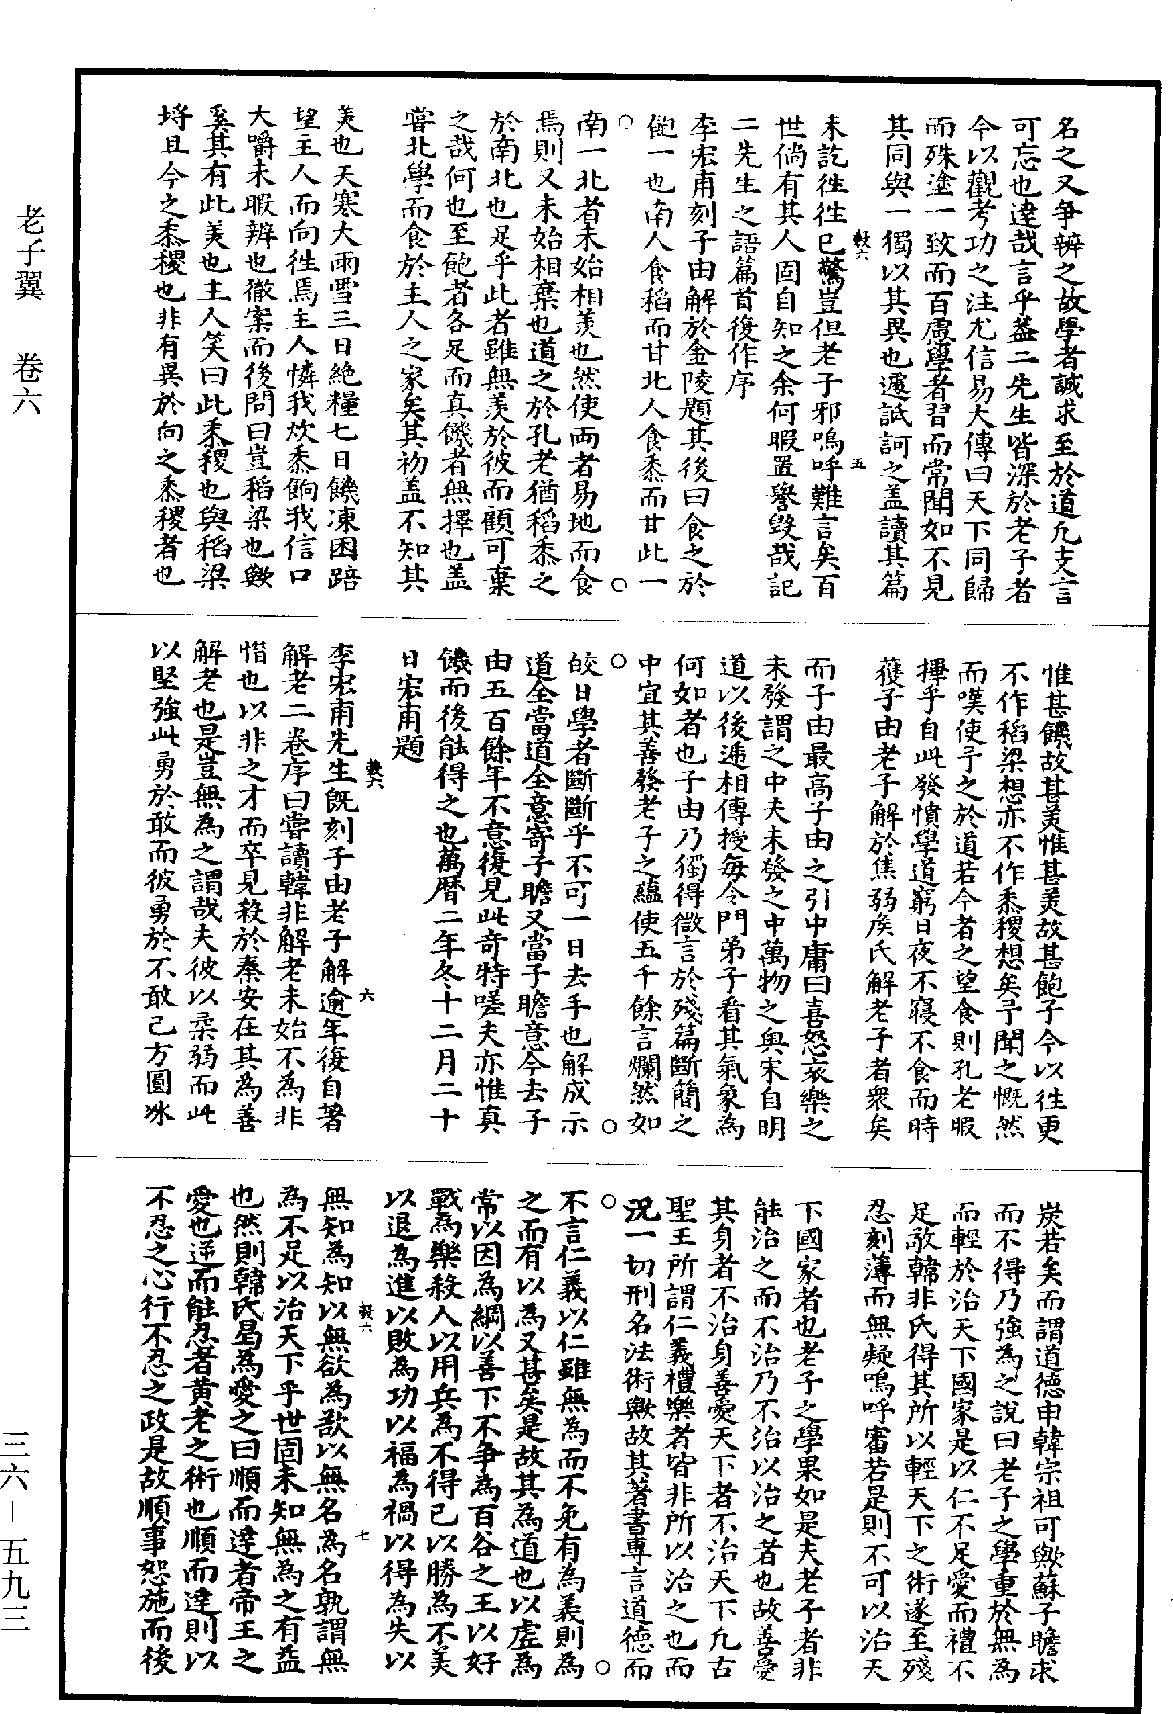 老子翼　卷六
名之又爭辨之故學者誠求至於道凡支言
可忘也達哉言乎蓋二先生皆深於老子者
今以觀考功之注尤信易大傳曰天下同歸
而殊塗一致而百慮學者習而常聞如不見
其同與一獨以其異也遽詆訶之蓋讀其篇
未訖徃徃已驚豈但老子邪嗚呼難言矣百
世倘有其人固自知之余何暇置譽毀哉記
二先生之語篇首復作序
李宏甫刻子由解於金陵題其後曰食之於
飽一也南人食稻而甘北人食黍而甘此一
南一北者未始相羨也然使兩者易地而食
焉則又未始相棄也道之於孔老猶稻黍之
於南北也足乎此者雖無羨於彼而顧可棄
之哉何也至飽者各足而真饑者無擇也蓋
嘗北學而食於主人之家矣其初蓋不知其
美也天寒大雨雪三日絕糧七日饑凍困踣
望主人而向徃焉主人憐我炊黍餉我信口
大嚼未暇辨也徹案而後問曰豈稻粱也歟
奚其有此美也主人笑曰此黍稷也與稻粱
埒且今之黍稷也非有異於向之黍稷者也
惟甚饑故甚美惟甚美故甚飽子今以徃更
不作稻粱想亦不作黍稷想矣予聞之慨然
而嘆使予之於道若今者之望食則孔老暇
擇乎自此發憤學道窮日夜不寢不食而時
獲子由老子解於焦弱侯氏解老子者眾矣
而子由最高子由之引中庸曰喜怒哀樂之
未發謂之中夫未發之中萬物之奧宋自明
道以後遞相傳授每令門弟子看其氣象為
何如者也子由乃獨得微言於殘篇斷簡之
中宜其善發老子之蘊使五千餘言爛然如
皎日學者斷斷乎不可一日去手也解成示
道全當道全意寄子瞻又當子瞻意今去子
由五百餘年不意復見此奇特嗟夫亦惟真
饑而後能得之也萬曆二年冬十二月二十
日宏甫題
李宏甫先生既刻子由老子解逾年復自著
解老二卷序曰嘗讀韓非解老未始不為非
惜也以非之才而卒見殺於秦安在其為善
解老也是豈無為之謂哉夫彼以柔弱而此
以堅強此勇於敢而彼勇於不敢已方圓冰
炭若矣而謂道德申韓宗祖可歟蘇子瞻求
而不得乃強為之說曰老子之學重於無為
而輕於治天下國家是以仁不足愛而禮不
足敬韓非氏得其所以輕天下之術遂至殘
忍刻薄而無疑嗚呼審若是則不可以治天
下國家者也老子之學果如是夫老子者非
能治之而不治乃不治以治之者也故善愛
其身者不治身善愛天下者不治天下凡古
聖王所謂仁義禮樂者皆非所以治之也而
況一切刑名法術歟故其著書專言道德而
不言仁義以仁雖無為而不免有為義則為
之而有以為又甚矣是故其為道也以虛為
常以因為綱以善下不爭為百谷之王以好
戰為樂殺人以用兵為不得已以勝為不美
以退為進以敗為功以福為禍以得為失以
無知為知以無欲為欲以無名為名孰謂無
為不足以治天下乎世固未知無為之有益
也然則韓氏曷為愛之曰順而達者帝王之
愛也逆而能忍者黃老之術也順而達則以
不忍之心行不忍之政是故順事恕施而後
三六—五九三